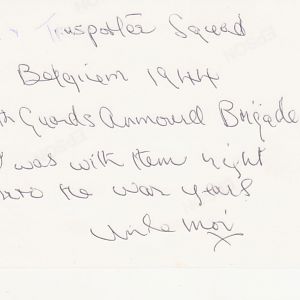 Transporter Squad
Belgium 1944
th Guards Armoured Brigade
I was with them right
into the war years
Uncle Moi x